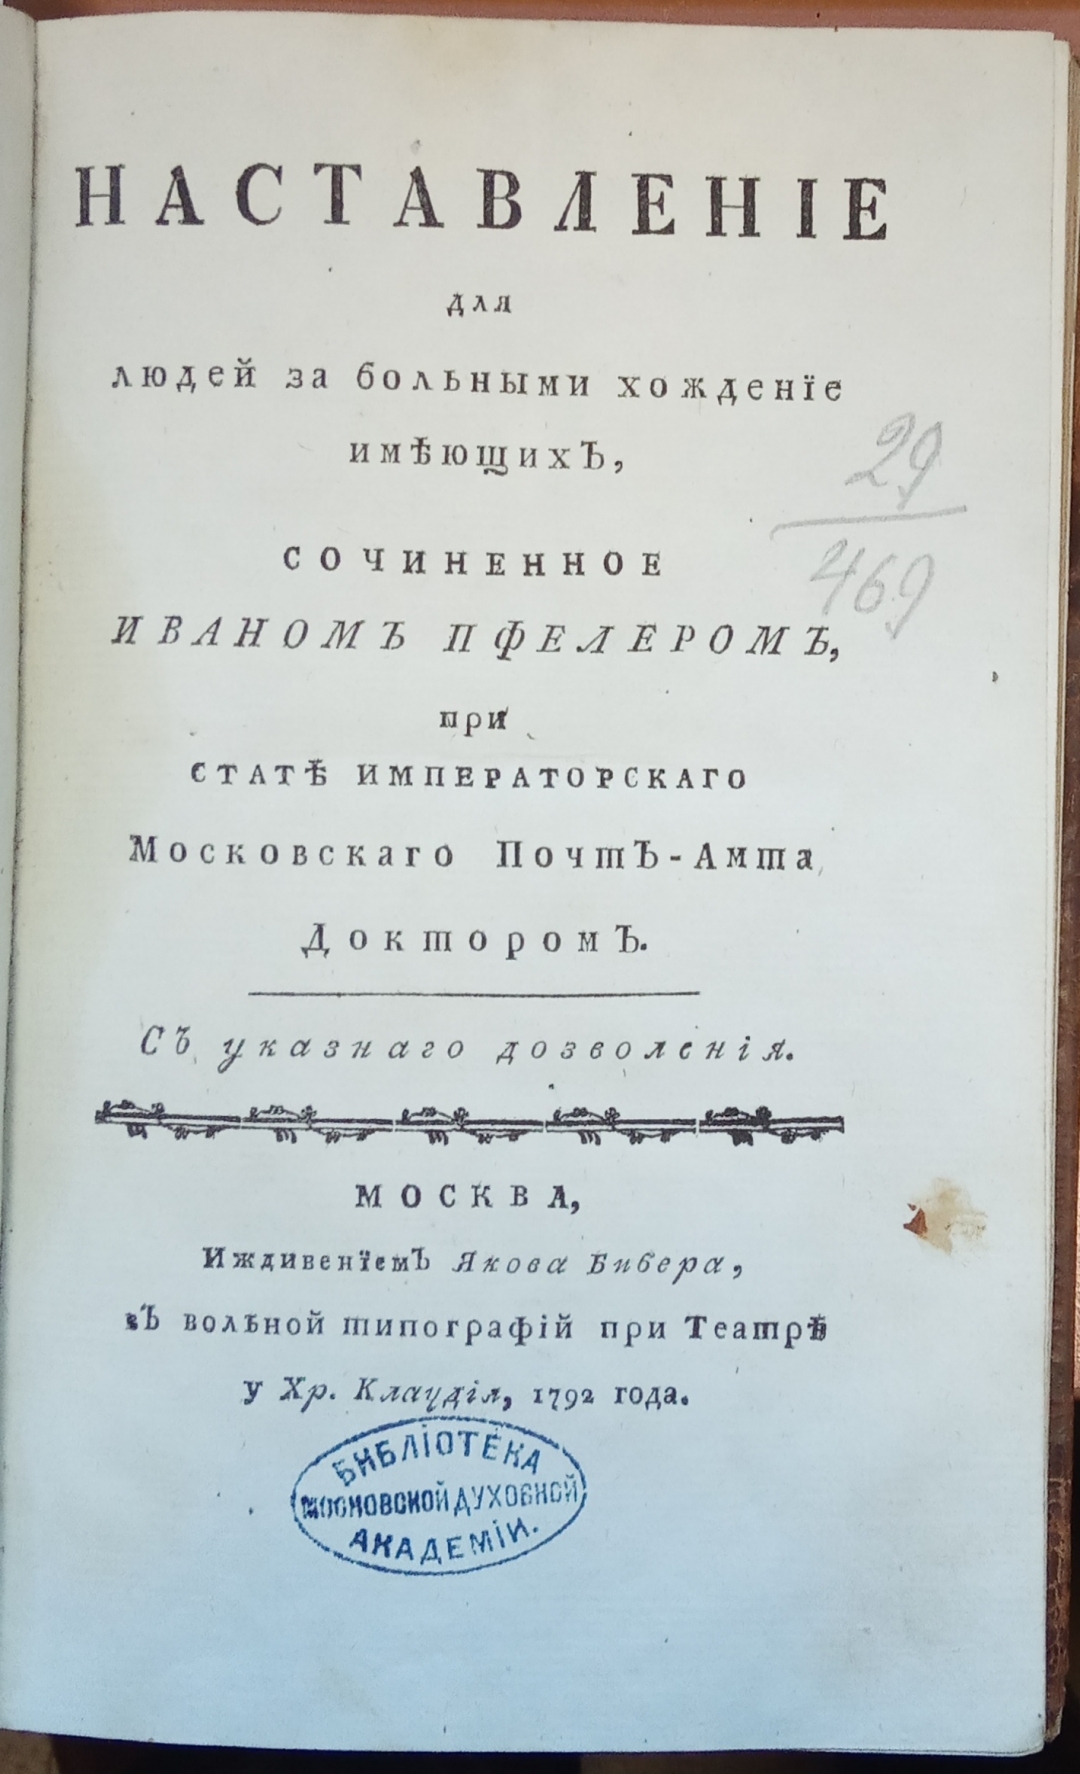 НАСТАВЛЕНІЕ
для
людей за больными хожденїе
имѣющихЪ,
29
469
СОЧИНЕННОЕ
ИВАНОМЪ ПФЕЛЕРОМЪ,
при
СТАТѢ ИМПЕРАТОРСКАГО
Московскаго ПочтЪ-Амта
ДокторомЪ.
СЪ указнаго дозволенія.
МОСКВА,
ИждивенїемЪ Якова Бибера,
вЪ вольной типографій при Театрѣ
у Хр. Клаудія, 1792 года.
БИБЛІОТЕКА
МОСКОВСКОЙ ДУХОВНОЙ
АКАДЕМІИ.